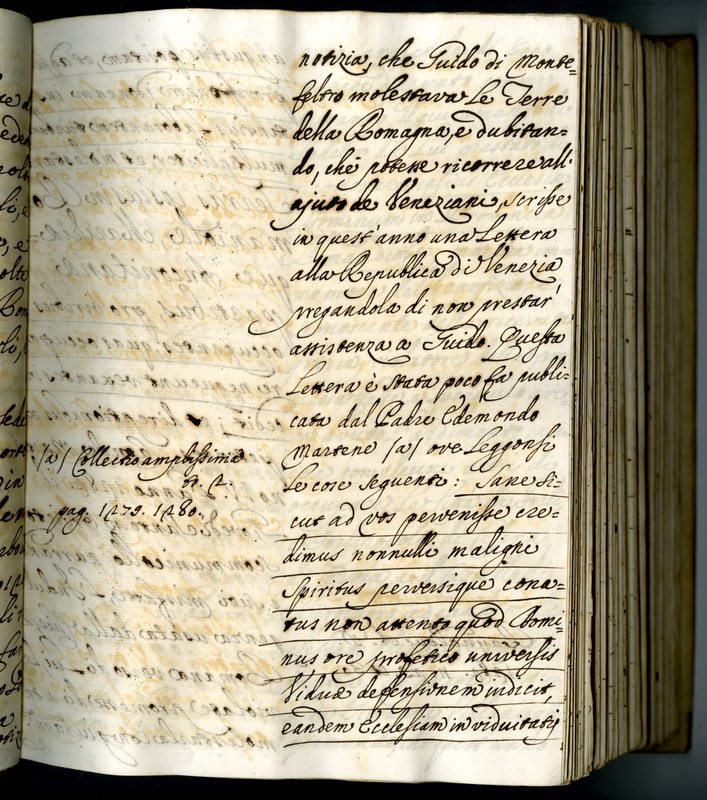 notizia, che Guido di Monte=
feltro molestava Le Terre
della Romagna, e dubitan=
do, che potesse ricorrere all'
ajuto de Veneziani, scrisse
in quest'anno una Lettera
alla Republica di Venezia
pregandola di non prestar'
assistenza a Guido. Questa
Lettera è stata poco fa publi=
cata dal Padre Edemondo
Martene (a) ove Leggonsi
Le cose seguenti: Sane si=
cut ad vos pervenisse cre=
dimus nonnulli maligni
Spiritus perversique cona=
tus non attento quod Domi=
nus ore profetico universis
Viduæ defensionem indicit,
eandem Ecclesiam in viduitatis
(a) Collectio amplissima
pag. 1279. 1280.